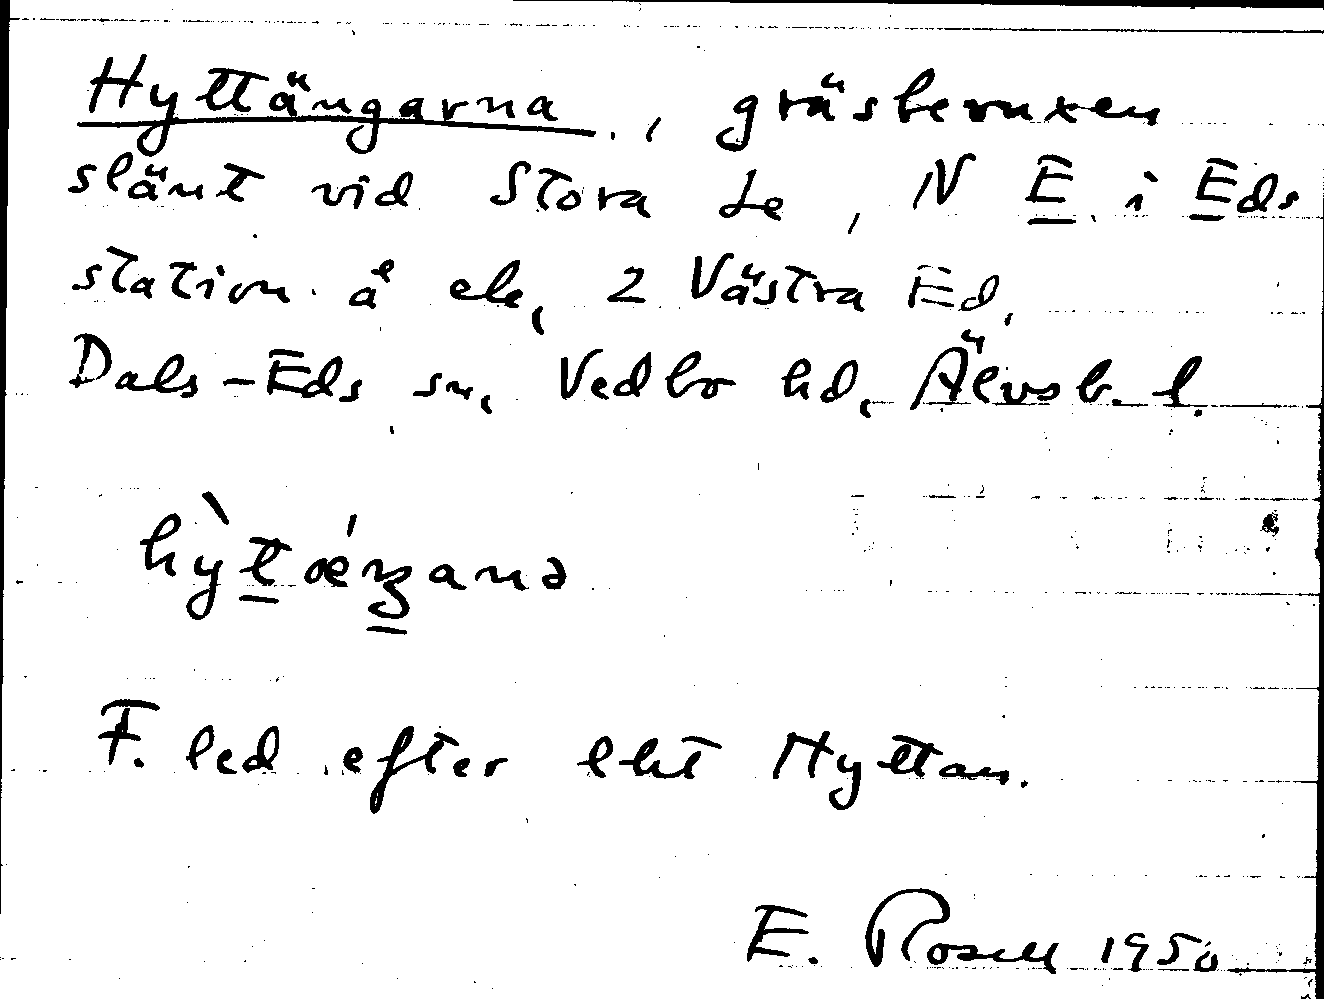 Hyttängarna, gräsbevuxen
slänt vid Stora Le, N E i Eds
station å ek. 2 Västra Ed,
Dals-Eds sn, Vedbo hd, Älvsb. l.
hỳtǽŋana
F. led efter lht Hyttan.
E. Rosell 1950